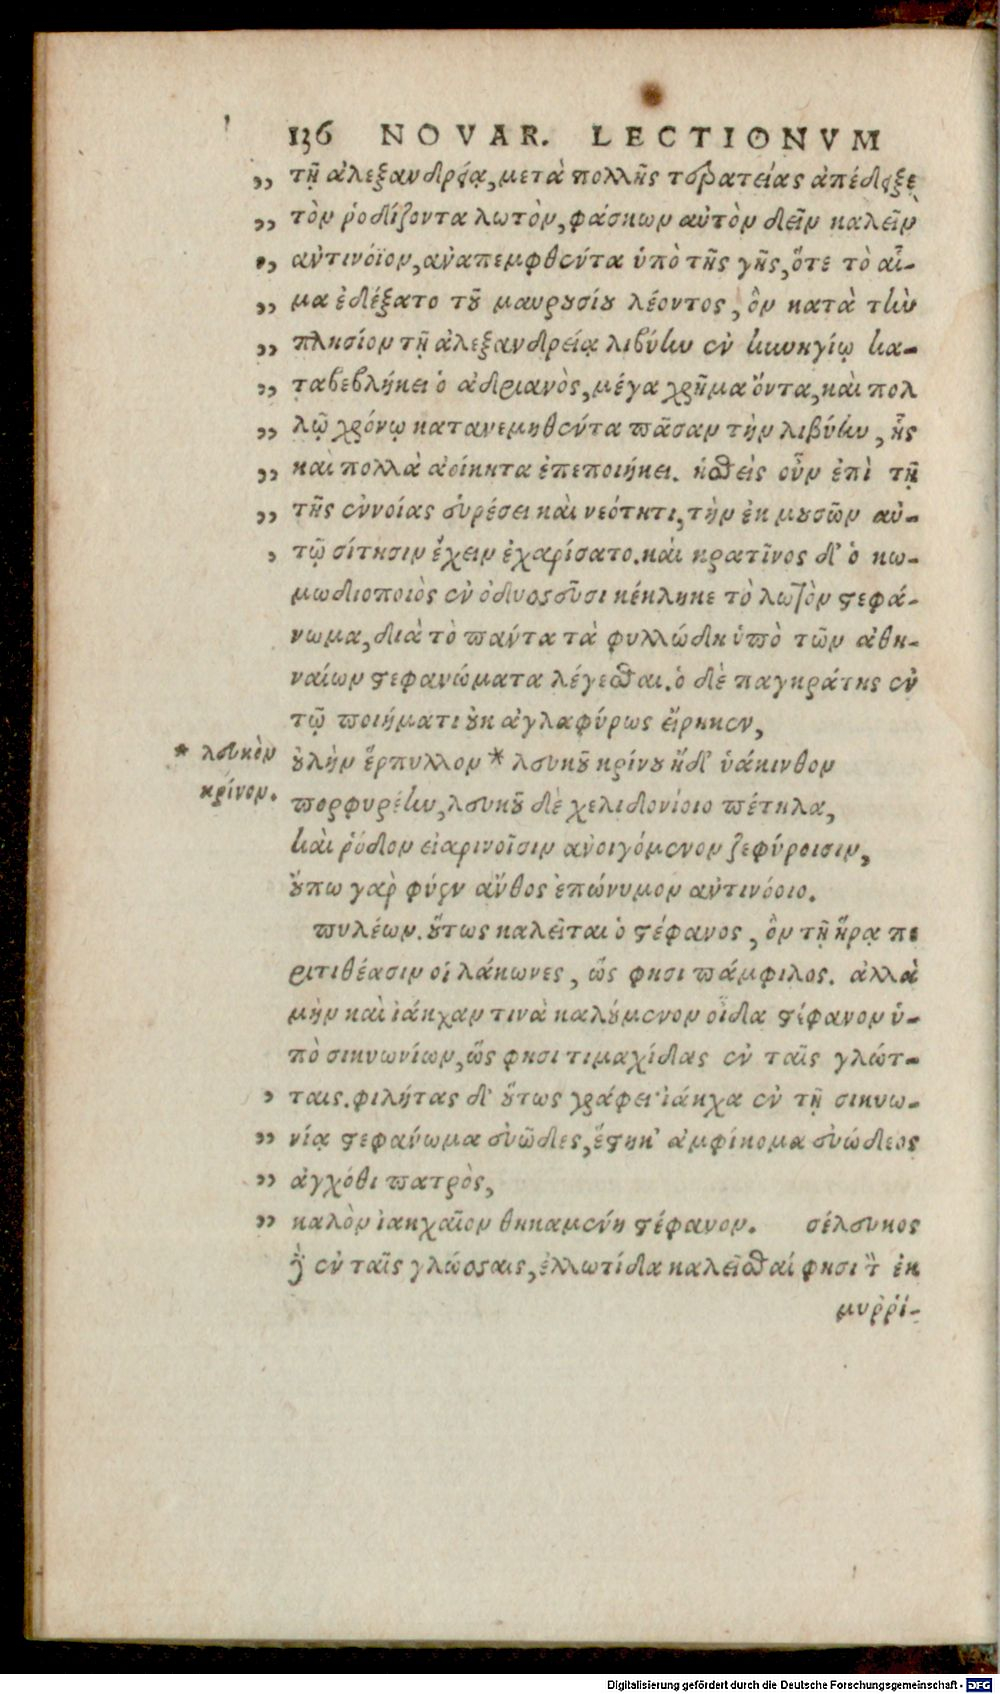 136 NOVAR. LECTIONVM
„ τῇ ἀλεξανδρείᾳ, μετὰ πολλῆς τερατείας ἀπέδειξε
„ τὸν ῥοδίζοντα λωτὸν, φάσκων αὐτὸν δεῖν καλεῖν
„ ἀντινόϊον, ἀναπεμφθέντα ὑπὸ τῆς γῆς, ὅτε τὸ αἷ-
„ μα ἐδέξατο τοῦ μαυρουσίου λέοντος, ὃν κατὰ τὴν
„ πλησίον τῇ ἀλεξανδρείᾳ λιβύην ἐν κυνηγίῳ κα-
„ ταβεβλήκει ὁ ἀδριανὸς, μέγα χρῆμα ὄντα, καὶ πολ
„ λῷ χρόνῳ κατανεμηθέντα πᾶσαν τὴν λιβύην, ἧς
„ καὶ πολλὰ ἀοίκητα ἐπεποιήκει. ἡσθεὶς οὖν ἐπὶ τῇ
„ τῆς ἐννοίας εὑρέσει καὶ νεότητι, τὴν ἐκ μουσῶν αὐ-
, τῷ σίτησιν ἔχειν ἐχαρίσατο. καὶ κρατῖνος δ' ὁ κω-
μωδιοποιὸς ἐν ὀδυοσεῦσι κέκληκε τὸ λωτὸν στεφά-
νωμα, διὰ τὸ πάντα τὰ φυλλώδη ὑπὸ τῶν ἀθη-
ναίων στεφανώματα λέγεσθαι. ὁ δὲ παγκράτης ἐν
τῷ ποιήματι οὐκ ἀγλαφύρως εἴρηκεν,
* λευκὸν κρίνον.
οὐλὴν ἕρπυλλον * λευκοῦ κρίνου ἢ δ' ὑάκινθον
πορφυρέην, λευκοῦ δὲ χελιδονίοιο πέτηλα,
καὶ ῥόδον εἰαρινοῖσιν ἀνοιγόμενον ζεφύροισιν,
οὔπω γὰρ φύεν ἄνθος ἐπώνυμον ἀντινόοιο.
πυλέων. οὕτως καλεῖται ὁ στέφανος, ὃν τῇ ἥρᾳ πε
ριτιθέασιν οἱ λάκωνες, ὥς φησι πάμφιλος. ἀλλὰ
μὴν καὶ ἰάκχαν τινὰ καλούμενον οἶδα στέφανον ὑ-
πὸ σικυωνίων, ὥς φησι τιμαχίδας ἐν ταῖς γλώτ-
, ταις. φιλήτας δ' οὕτως γράφει· ἰάκχα ἐν τῇ σικυω-
„ νίᾳ στεφάνωμα εὐῶδες, ἕστηκ' ἀμφίκομα εὐώδεος
„ ἀγχόθι πατρὸς,
„ καλὸν ἰακχαῖον θηκαμένη στέφανον. σέλευκος
δὲ ἐν ταῖς γλώσσαις, ἐλλωτίδα καλεῖσθαί φησι τὸν ἐκ
μυῤῥί-
Digitalisierung gefördert durch die Deutsche Forschungsgemeinschaft - DFG